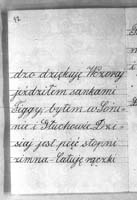 dzo dziękuję Wczoraj
jeździłem sankami
Ciggy, byłem w Łoni-
nie i Głuchowie Dzi-
siaj jest pięć stopni
zimna - Całuję rączki